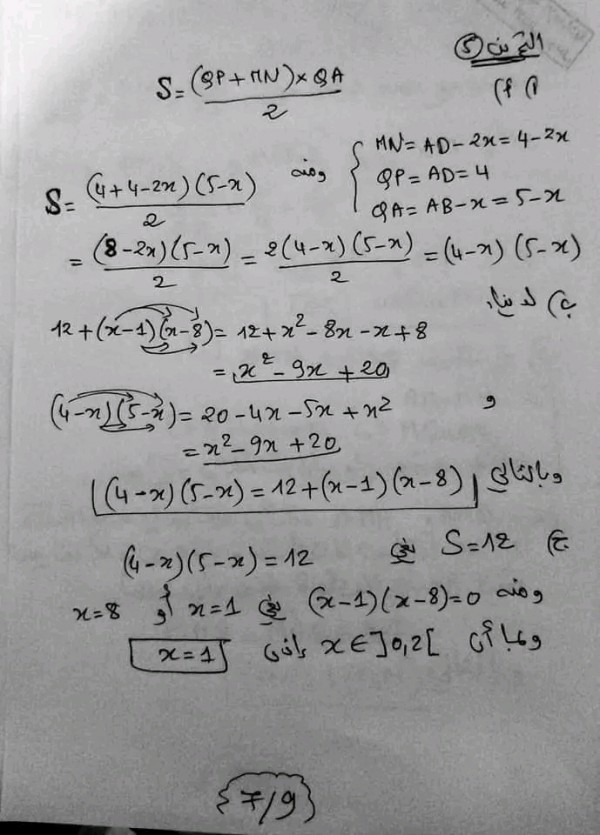 التمرين (5)
1) أ)
S = (QP + MN) × QA / 2
MN = AD - 2x = 4 - 2x
QP = AD = 4
QA = AB - x = 5 - x
ومنه
S = (4 + 4 - 2x)(5 - x) / 2
= (8 - 2x)(5 - x) / 2 = 2(4 - x)(5 - x) / 2 = (4 - x)(5 - x)
ب) لدينا:
12 + (x - 1)(x - 8) = 12 + x² - 8x - x + 8
= x² - 9x + 20
و (4 - x)(5 - x) = 20 - 4x - 5x + x²
= x² - 9x + 20
وبالتالي (4 - x)(5 - x) = 12 + (x - 1)(x - 8)
ج) S = 12 يعني (4 - x)(5 - x) = 12
ومنه (x - 1)(x - 8) = 0 يعني x = 1 أو x = 8
وبما أن x ∈ ]0,2[ إذن x = 1
{7/9}